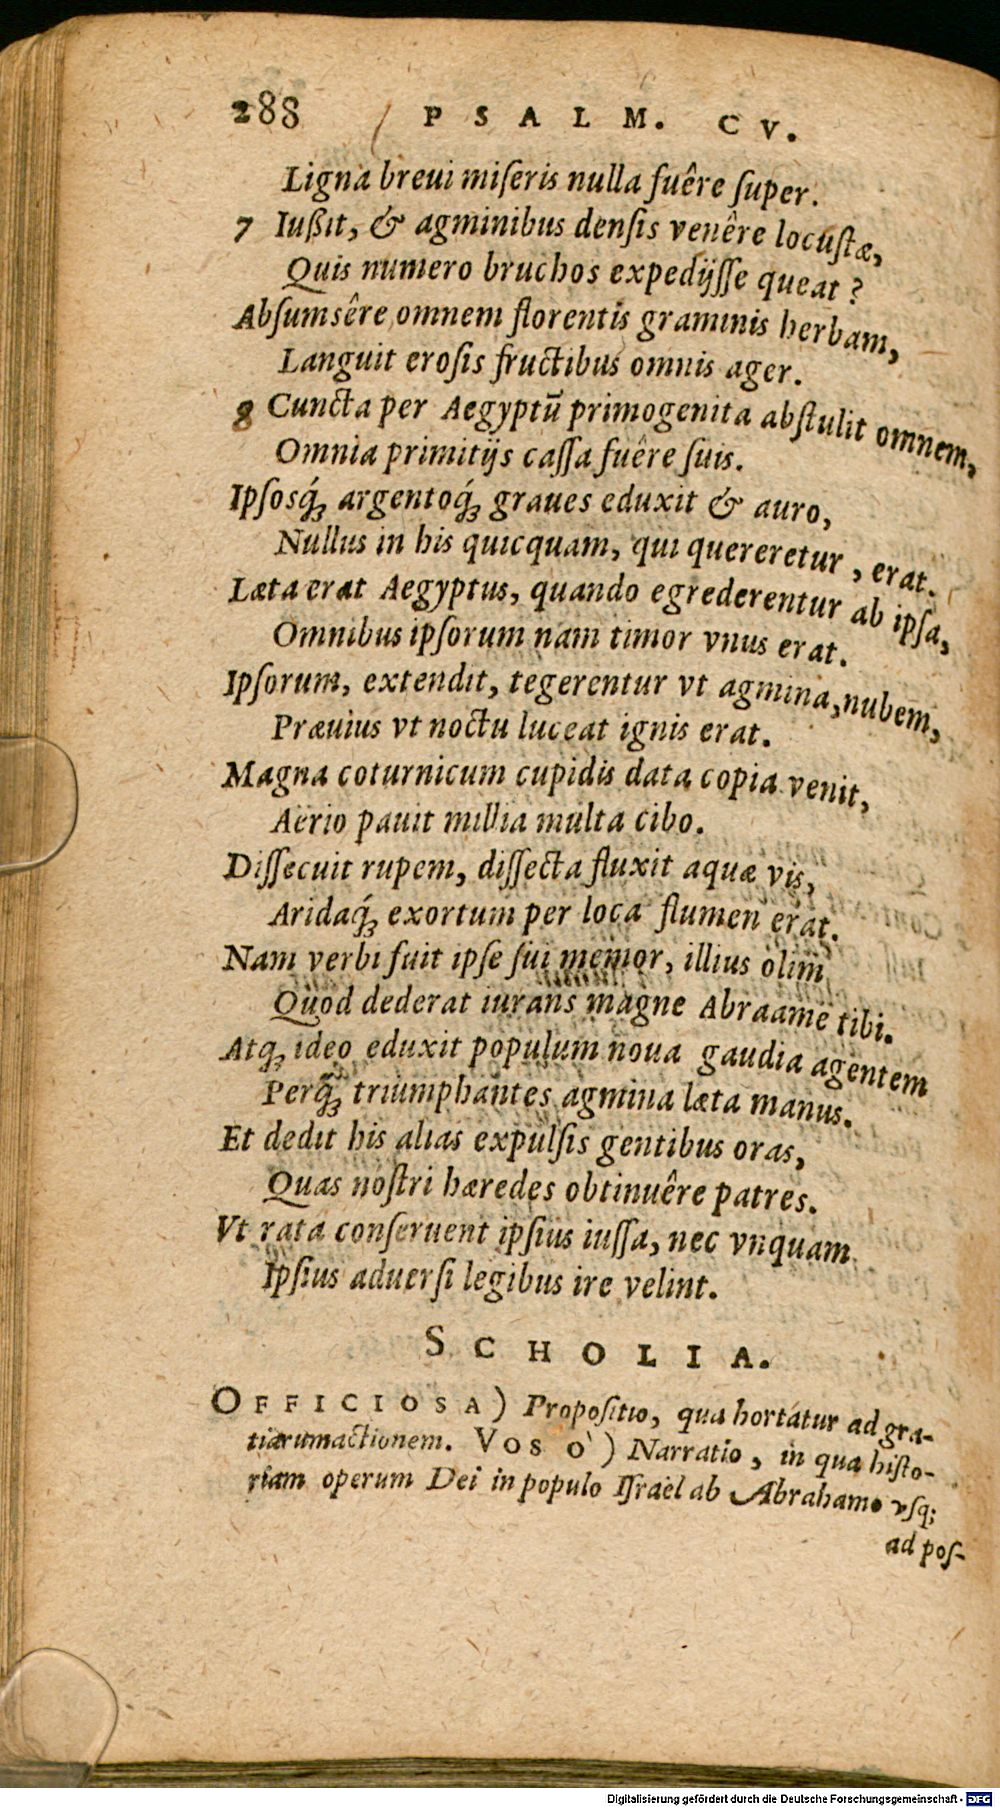 288 PSALM. CV.
Ligna breui miſeris nulla fuêre ſuper.
7 Iußit, & agminibus denſis venêre locuſtæ,
Quis numero bruchos expedijſſe queat?
Abſumsêre omnem florentis graminis herbam,
Languit eroſis fructibus omnis ager.
8 Cuncta per Aegyptū primogenita abſtulit omnem,
Omnia primitijs caſſa fuêre ſuis.
Ipſosq́; argentoq́; graues eduxit & auro,
Nullus in his quicquam, qui quereretur, erat.
Læta erat Aegyptus, quando egrederentur ab ipſa,
Omnibus ipſorum nam timor vnus erat.
Ipſorum, extendit, tegerentur vt agmina, nubem,
Præuius vt noctu luceat ignis erat.
Magna coturnicum cupidis data copia venit,
Aërio pauit millia multa cibo.
Diſſecuit rupem, diſſecta fluxit aquæ vis,
Aridaq́; exortum per loca flumen erat.
Nam verbi fuit ipſe ſui memor, illius olim
Quod dederat iurans magne Abraame tibi.
Atq; ideo eduxit populum noua gaudia agentem
Perq́; triumphantes agmina læta manus.
Et dedit his alias expulſis gentibus oras,
Quas noſtri hæredes obtinuêre patres.
Vt rata conſeruent ipſius iuſſa, nec vnquam
Ipſius aduerſi legibus ire velint.
SCHOLIA.
OFFICIOSA) Propoſitio, qua hortatur ad gra-
tiarumactionem. VOS Ò) Narratio, in qua hiſto-
riam operum Dei in populo Iſraël ab Abrahamo vſq;
ad poſ-
Digitalisierung gefördert durch die Deutsche Forschungsgemeinschaft - DFG